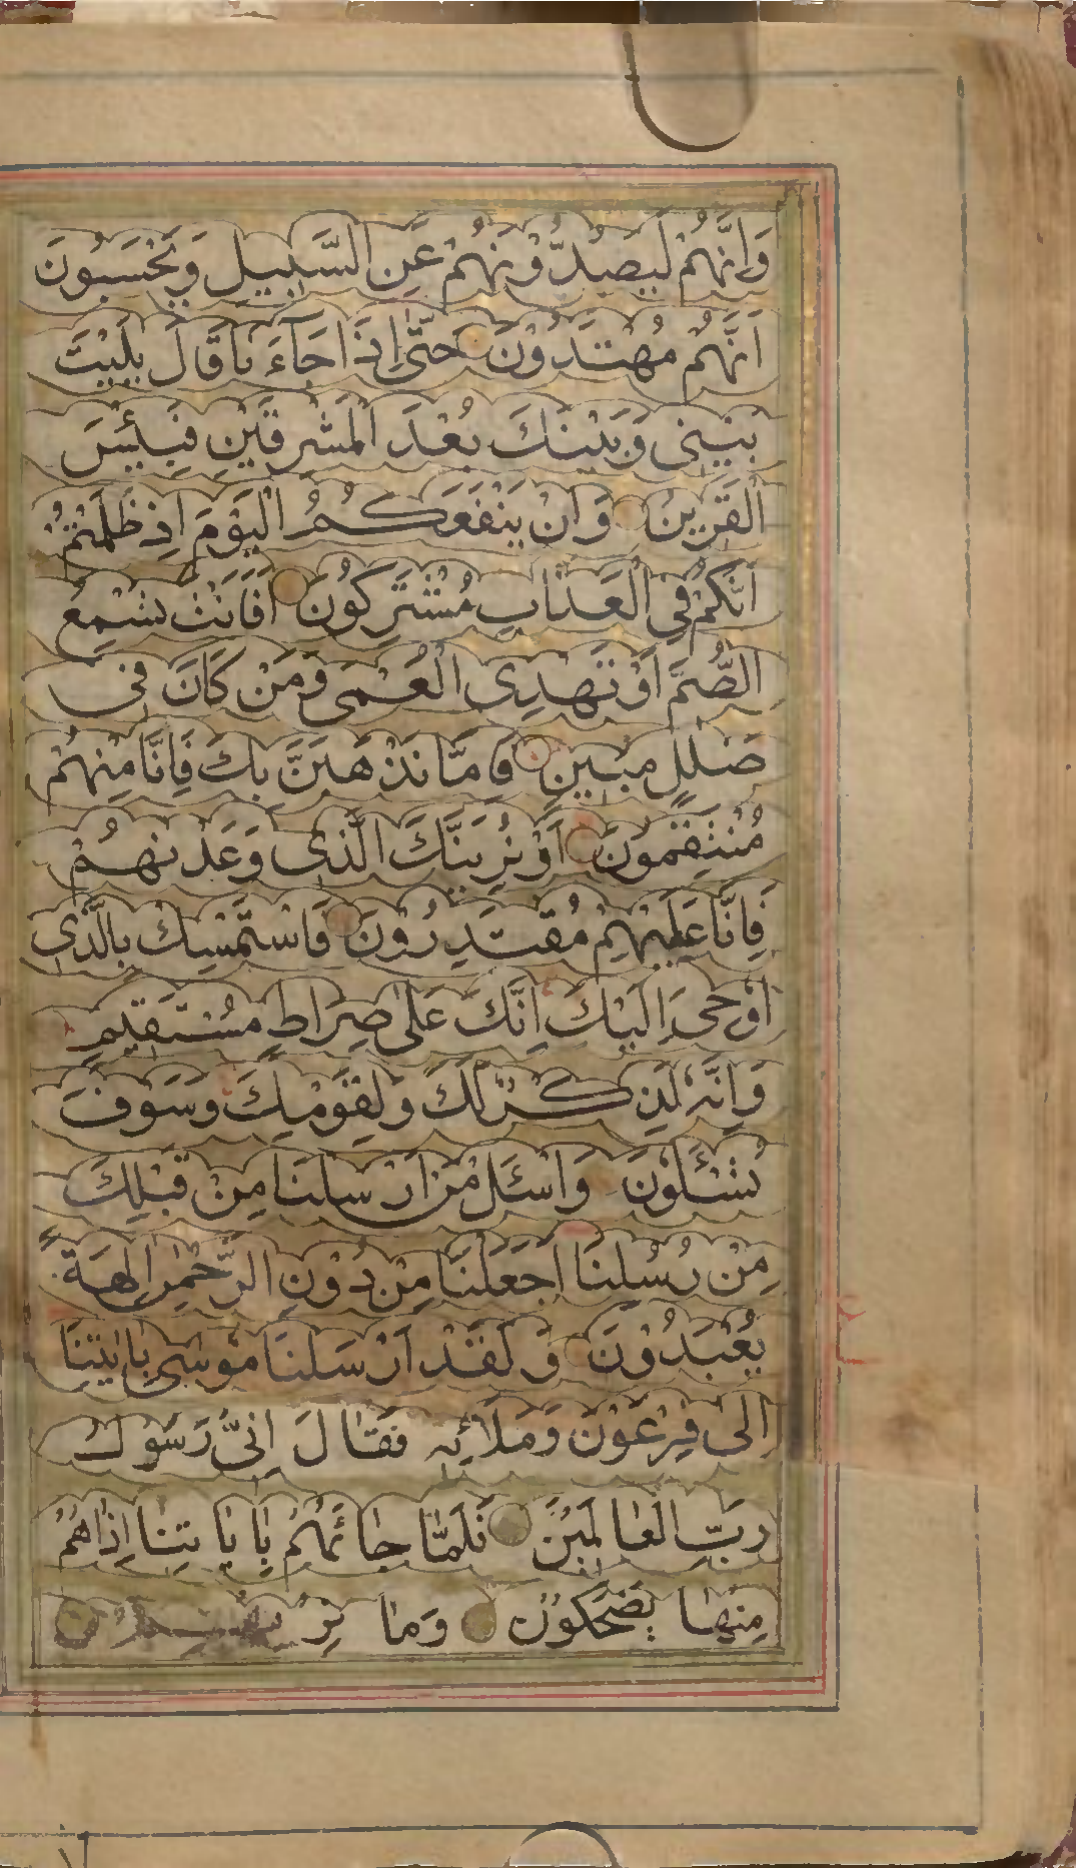 وَاِنَّهُمْ لَيَصُدُّوْنَهُمْ عَنِ السَّبِيلِ وَيَحْسَبُونَ
اَنَّهُمْ مُهْتَدُوْنَ حَتّٰى اِذَا جَآءَنَا قَالَ يٰلَيْتَ
بَيْنِى وَبَيْنَكَ بُعْدَ الْمَشْرِقَيْنِ فَبِئْسَ
الْقَرِينُ وَلَنْ يَنْفَعَكُمُ الْيَوْمَ اِذْ ظَلَمْتُمْ
اَنَّكُمْ فِى الْعَذَابِ مُشْتَرِكُونَ اَفَاَنْتَ تُسْمِعُ
الصُّمَّ اَوْ تَهْدِى الْعُمْىَ وَمَنْ كَانَ فِى
ضَلٰلٍ مُبِينٍ فَاِمَّا نَذْهَبَنَّ بِكَ فَاِنَّا مِنْهُمْ
مُنْتَقِمُونَ اَوْ نُرِيَنَّكَ الَّذِى وَعَدْنٰهُمْ
فَاِنَّا عَلَيْهِمْ مُقْتَدِرُوْنَ فَاسْتَمْسِكْ بِالَّذِى
اُوْحِىَ اِلَيْكَ اِنَّكَ عَلٰى صِرَاطٍ مُسْتَقِيمٍ
وَاِنَّهٗ لَذِكْرٌ لَكَ وَلِقَوْمِكَ وَسَوْفَ
تُسْئَلُونَ وَاسْئَلْ مَنْ اَرْسَلْنَا مِنْ قَبْلِكَ
مِنْ رُسُلِنَا اَجَعَلْنَا مِنْ دُوْنِ الرَّحْمٰنِ اٰلِهَةً
يُعْبَدُوْنَ وَلَقَدْ اَرْسَلْنَا مُوْسٰى بِاٰيٰتِنَا
اِلٰى فِرْعَوْنَ وَمَلَائِهٖ فَقَالَ اِنِّى رَسُوْلُ
رَبِّ الْعَالَمِيْنَ فَلَمَّا جَائَهُمْ بِاٰيَاتِنَا اِذَا هُمْ
مِنْهَا يَضْحَكُوْنَ وَمَا نُرِيهِمْ